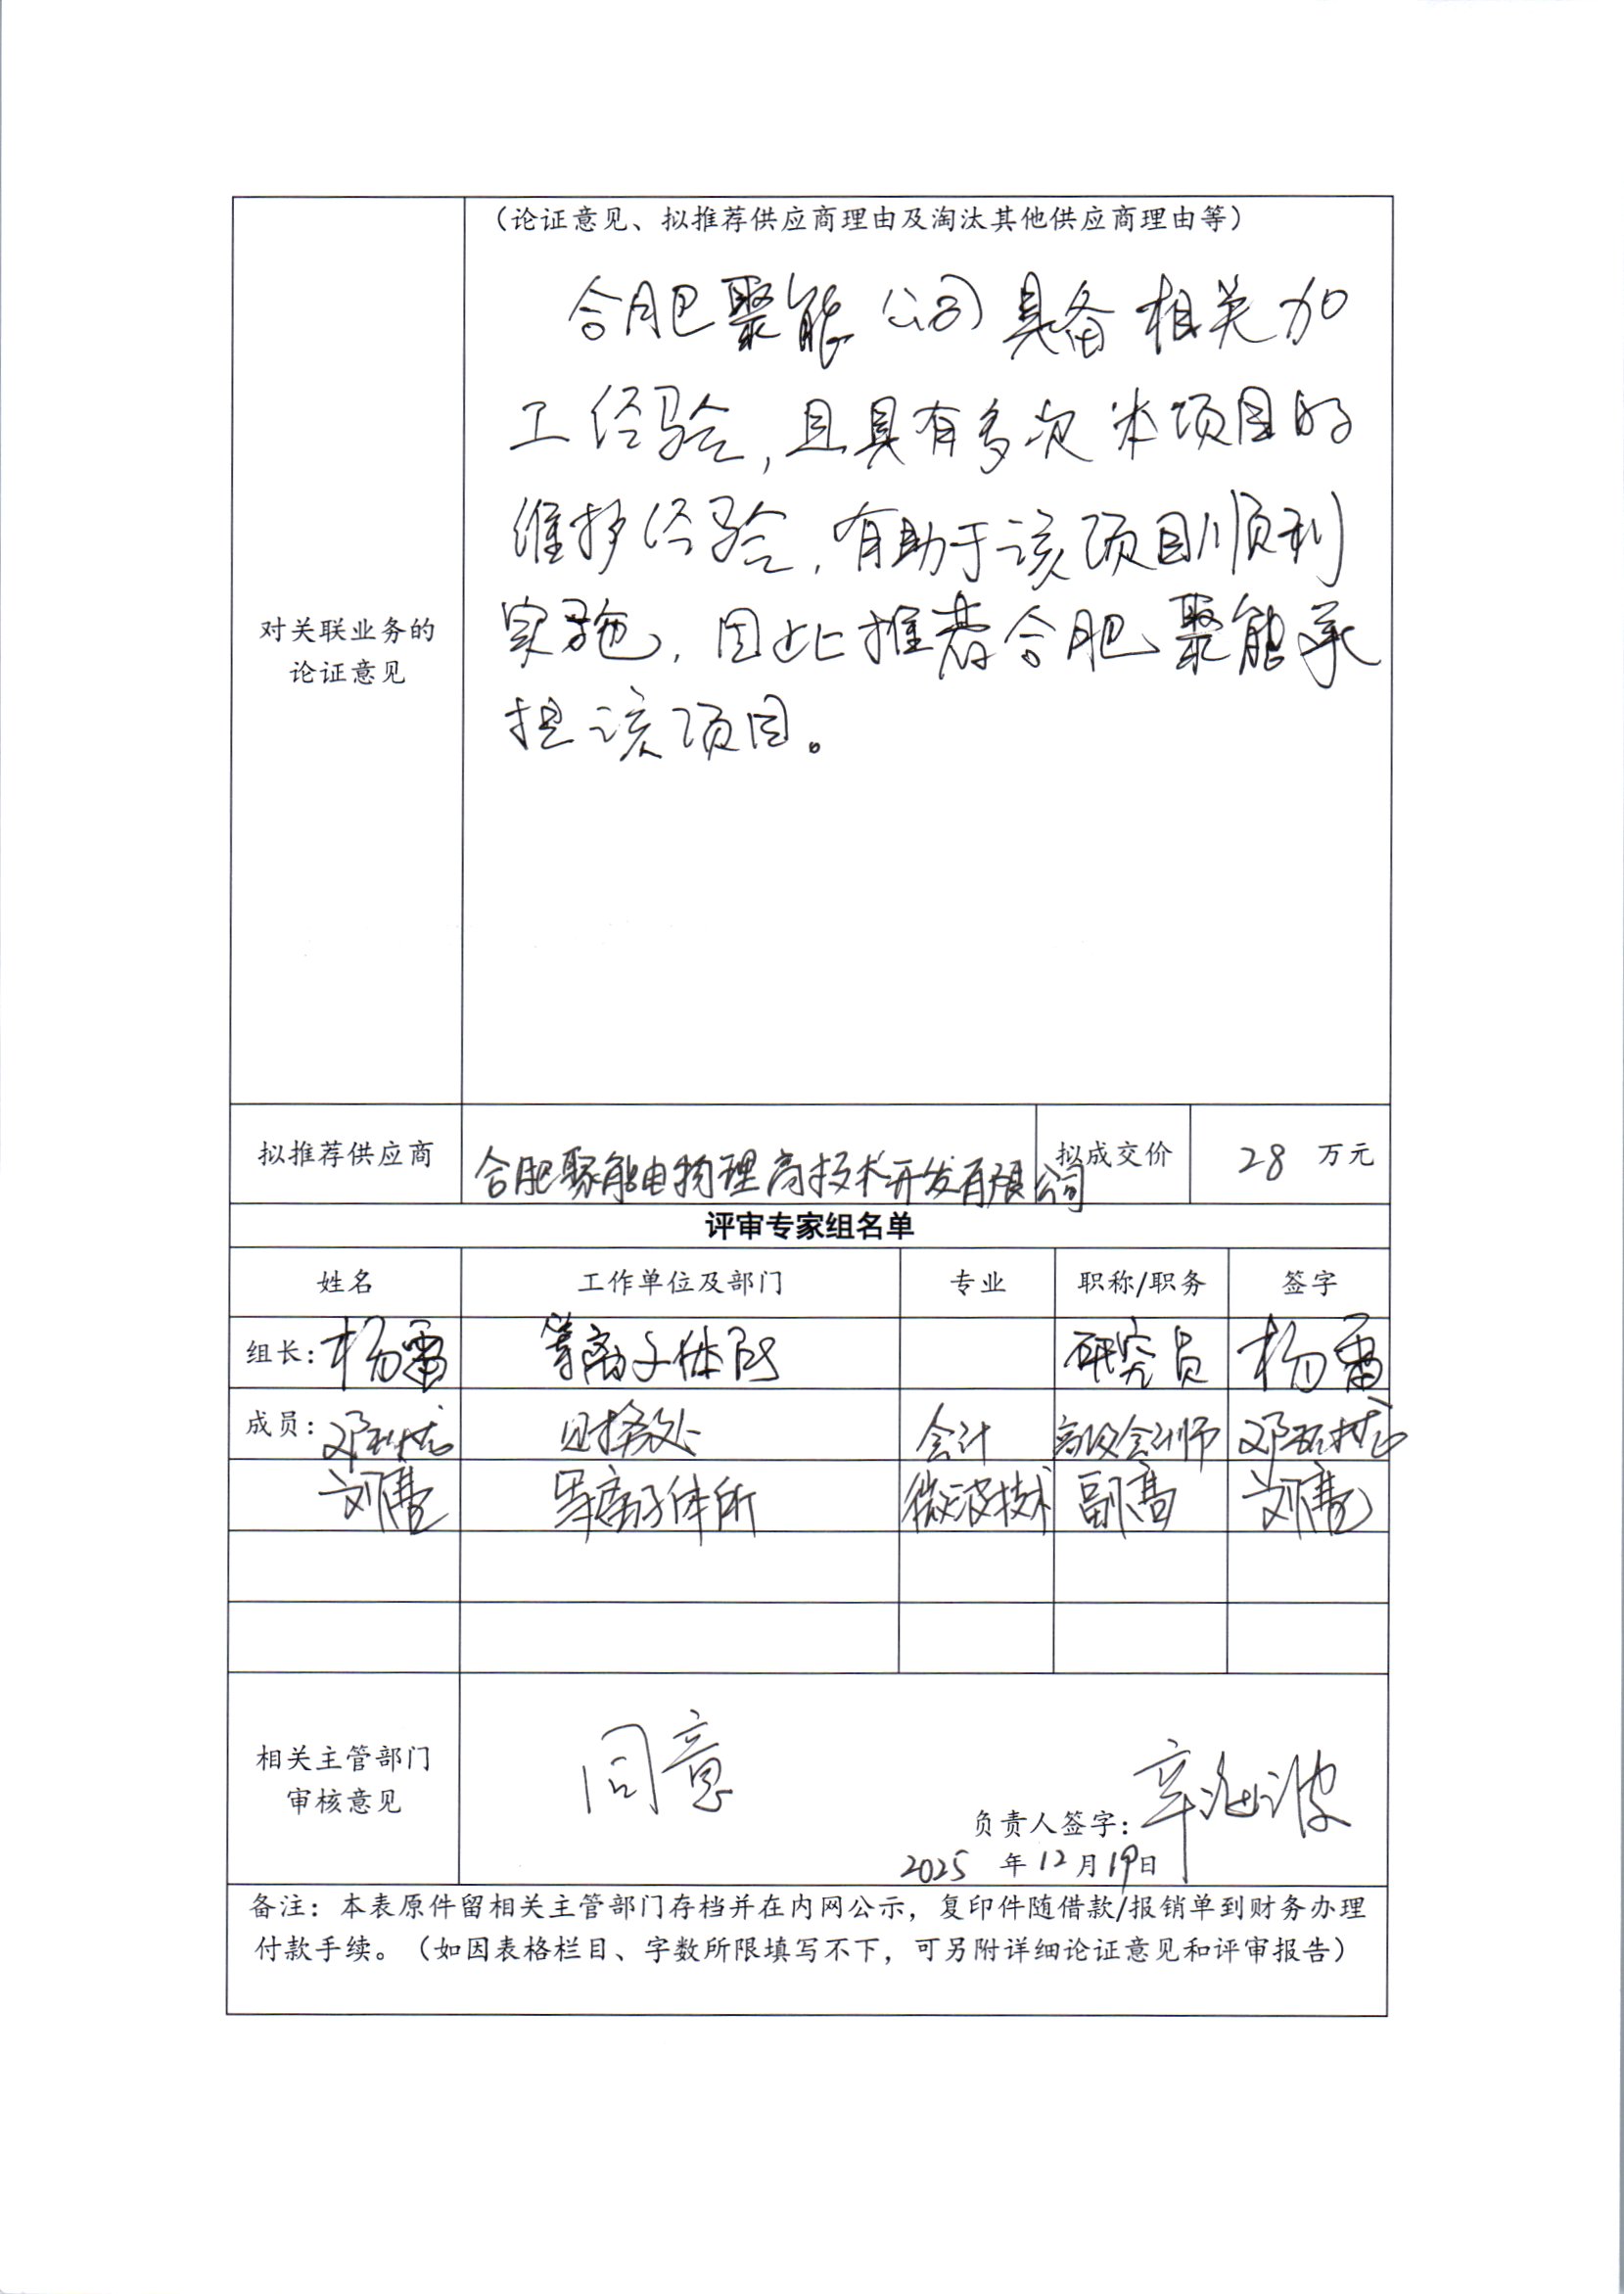 （论证意见、拟推荐供应商理由及淘汰其他供应商理由等）
合肥聚能公司具备相关加
工经验，且具有多次本项目的
维护经验，有助于该项目顺利
实施，因此推荐合肥聚能承
担该项目。
对关联业务的
论证意见
拟推荐供应商 合肥聚能电物理高技术开发有限公司 拟成交价 28 万元
评审专家组名单
姓名 工作单位及部门 专业 职称/职务 签字
组长：杨雷 等离子体所 研究员 杨雷
成员：邓 财务处 会计 高级会计师 邓
刘 等离子体所 微波技术 副高 刘
同意
相关主管部门
审核意见
负责人签字：辛波
2025 年 12 月 19 日
备注：本表原件留相关主管部门存档并在内网公示，复印件随借款/报销单到财务办理
付款手续。（如因表格栏目、字数所限填写不下，可另附详细论证意见和评审报告）